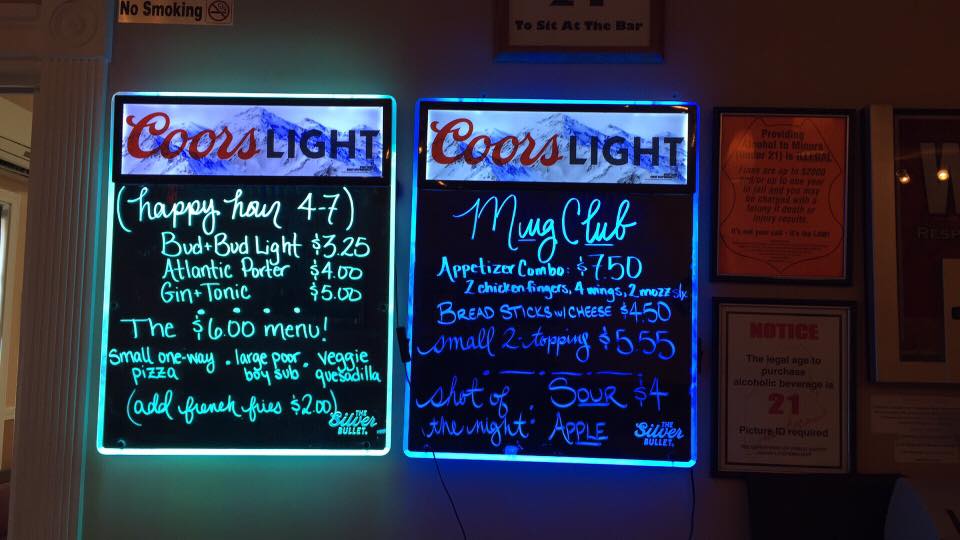 No Smoking
21
To Sit At The Bar
Coors LIGHT
(happy hour 4-7)
Bud + Bud Light $3.25
Atlantic Porter $4.00
Gin + Tonic $5.00
The $6.00 menu!
small one-way pizza · large poor boy sub · veggie quesadilla
(add french fries $2.00)
THE
Silver
BULLET.
Coors LIGHT
Mug Club
Appetizer Combo: $7.50
2 chicken fingers, 4 wings, 2 mozz stx
BREAD STICKS w/ CHEESE $4.50
small 2-topping $5.55
shot of the night: SOUR APPLE $4
THE
Silver
BULLET.
Providing
Alcohol to Minors
(under 21) is ILLEGAL
Fines are up to $2000
and/or up to one year
in jail and you may
be charged with a
felony if death or
injury results.
It's not your call - it's the LAW!
NOTICE
The legal age to
purchase
alcoholic beverage is
21
Picture ID required
W
RESP